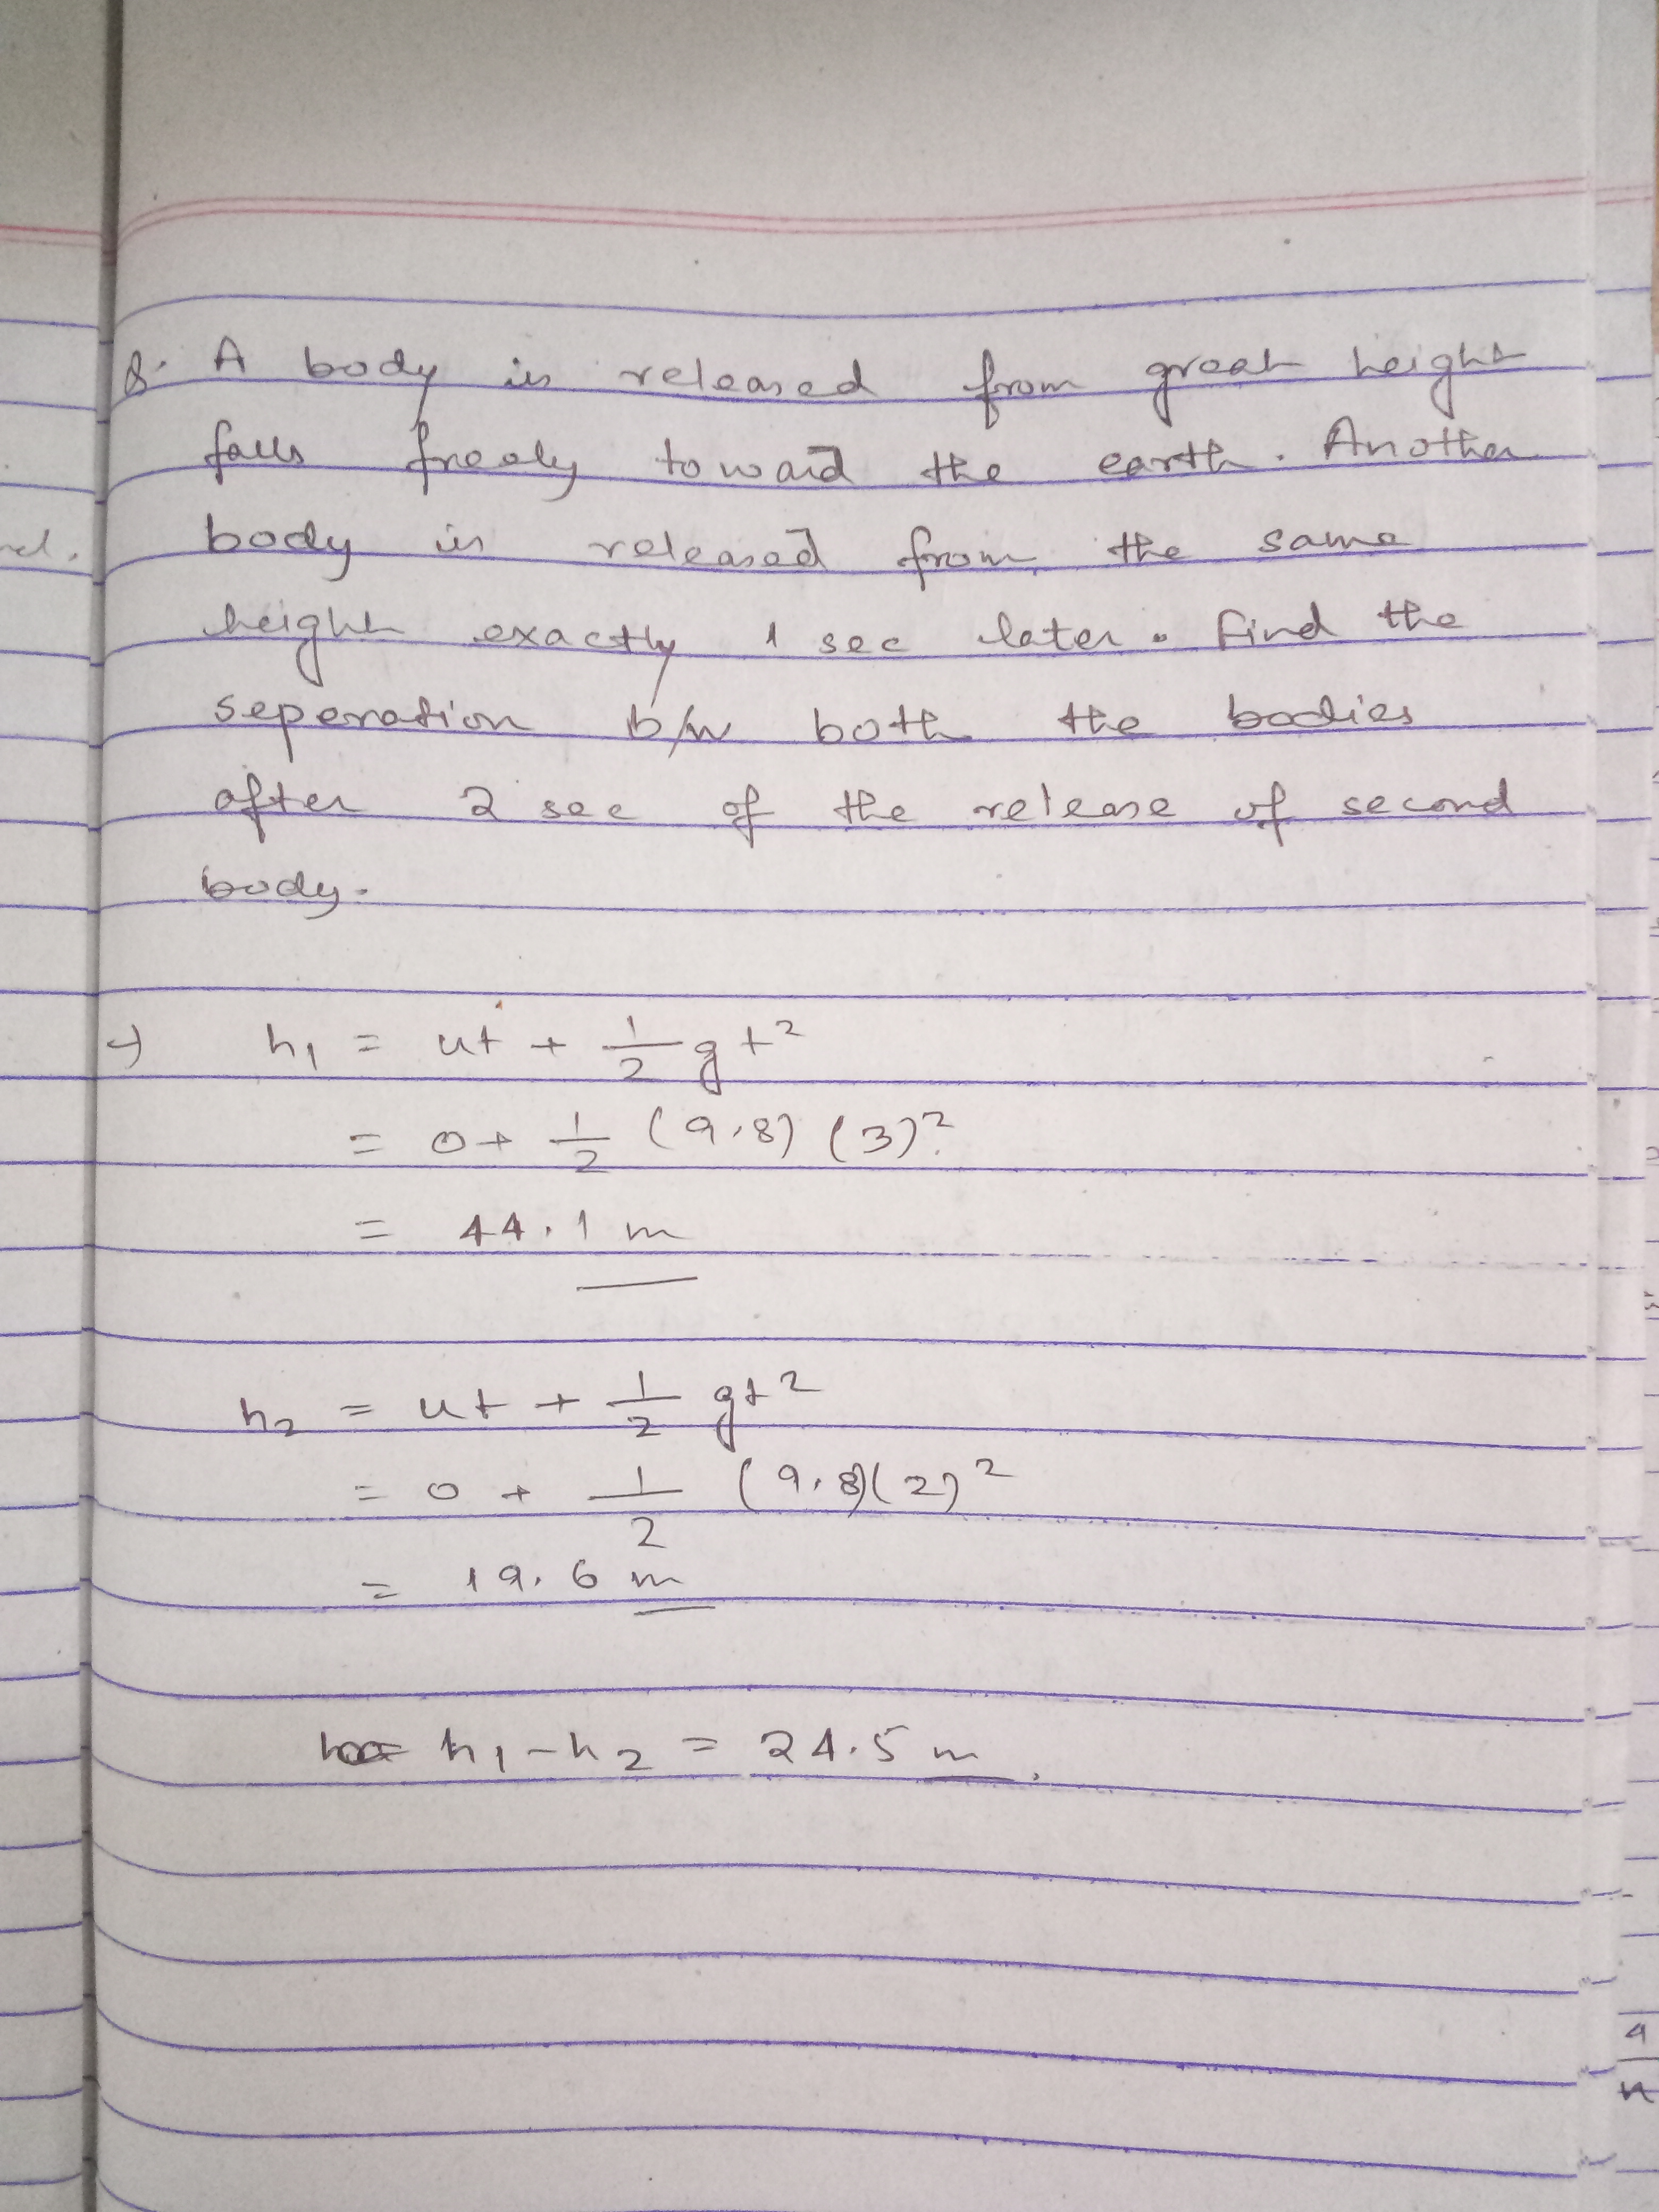 Q. A body is released from great height
falls freely toward the earth. Another
body is released from the same
height exactly 1 sec later. Find the
seperation b/w both the bodies
after 2 sec of the release of second
body.
→ h₁ = ut + 1/2 gt²
= 0 + 1/2 (9.8) (3)²
= 44.1 m
h₂ = ut + 1/2 gt²
= 0 + 1/2 (9.8)(2)²
= 19.6 m
h₁ - h₂ = 24.5 m.